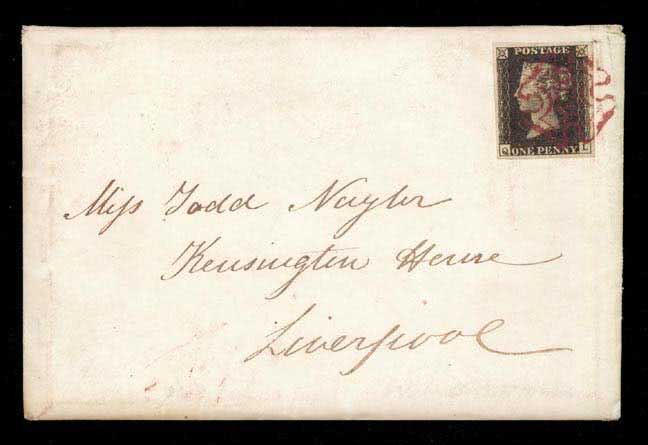 POSTAGE
S L
ONE PENNY
Miss Todd Naylor
Kensington House
Liverpool